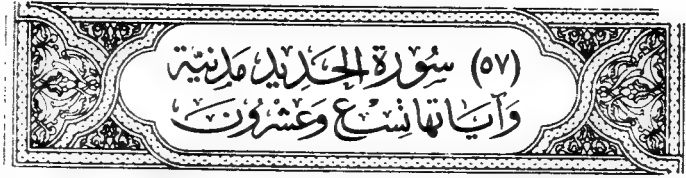 (٥٧) سُورَة الحَدِيْد مَدَنِيَّة
وَآيَاتها تِسْع وَعشْرُونَ